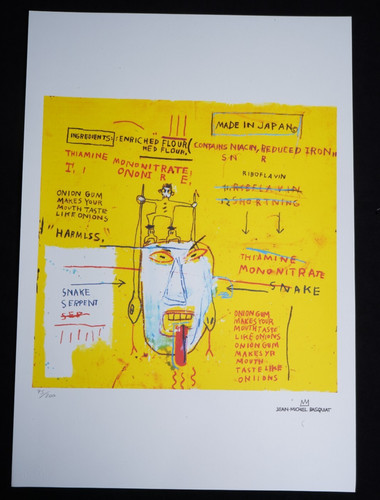 MADE IN JAPAN©
INGREDIENTS: ENRICHED FLOUR (CONTAINS NIACIN, REDUCED IRON,,
HED FLOUR,
SN R
THIAMINE MONONITRATE;
ONONI R E;
RIBOFLAVIN
RIBOFLAVIN
SHORTNING
ONION GUM
MAKES YOUR
MOUTH TASTE
LIKE ONIONS
"HARMLSS,"
THIAMINE
MONONITRATE
SNAKE
SNAKE
SERPENT
SER
ONION GUM
MAKES YOUR
MOUTH TASTE
LIKE ONIONS
ONION GUM
MAKES YR
MOUTH
TASTE LIKE
ONIIONS
JEAN-MICHEL BASQUIAT